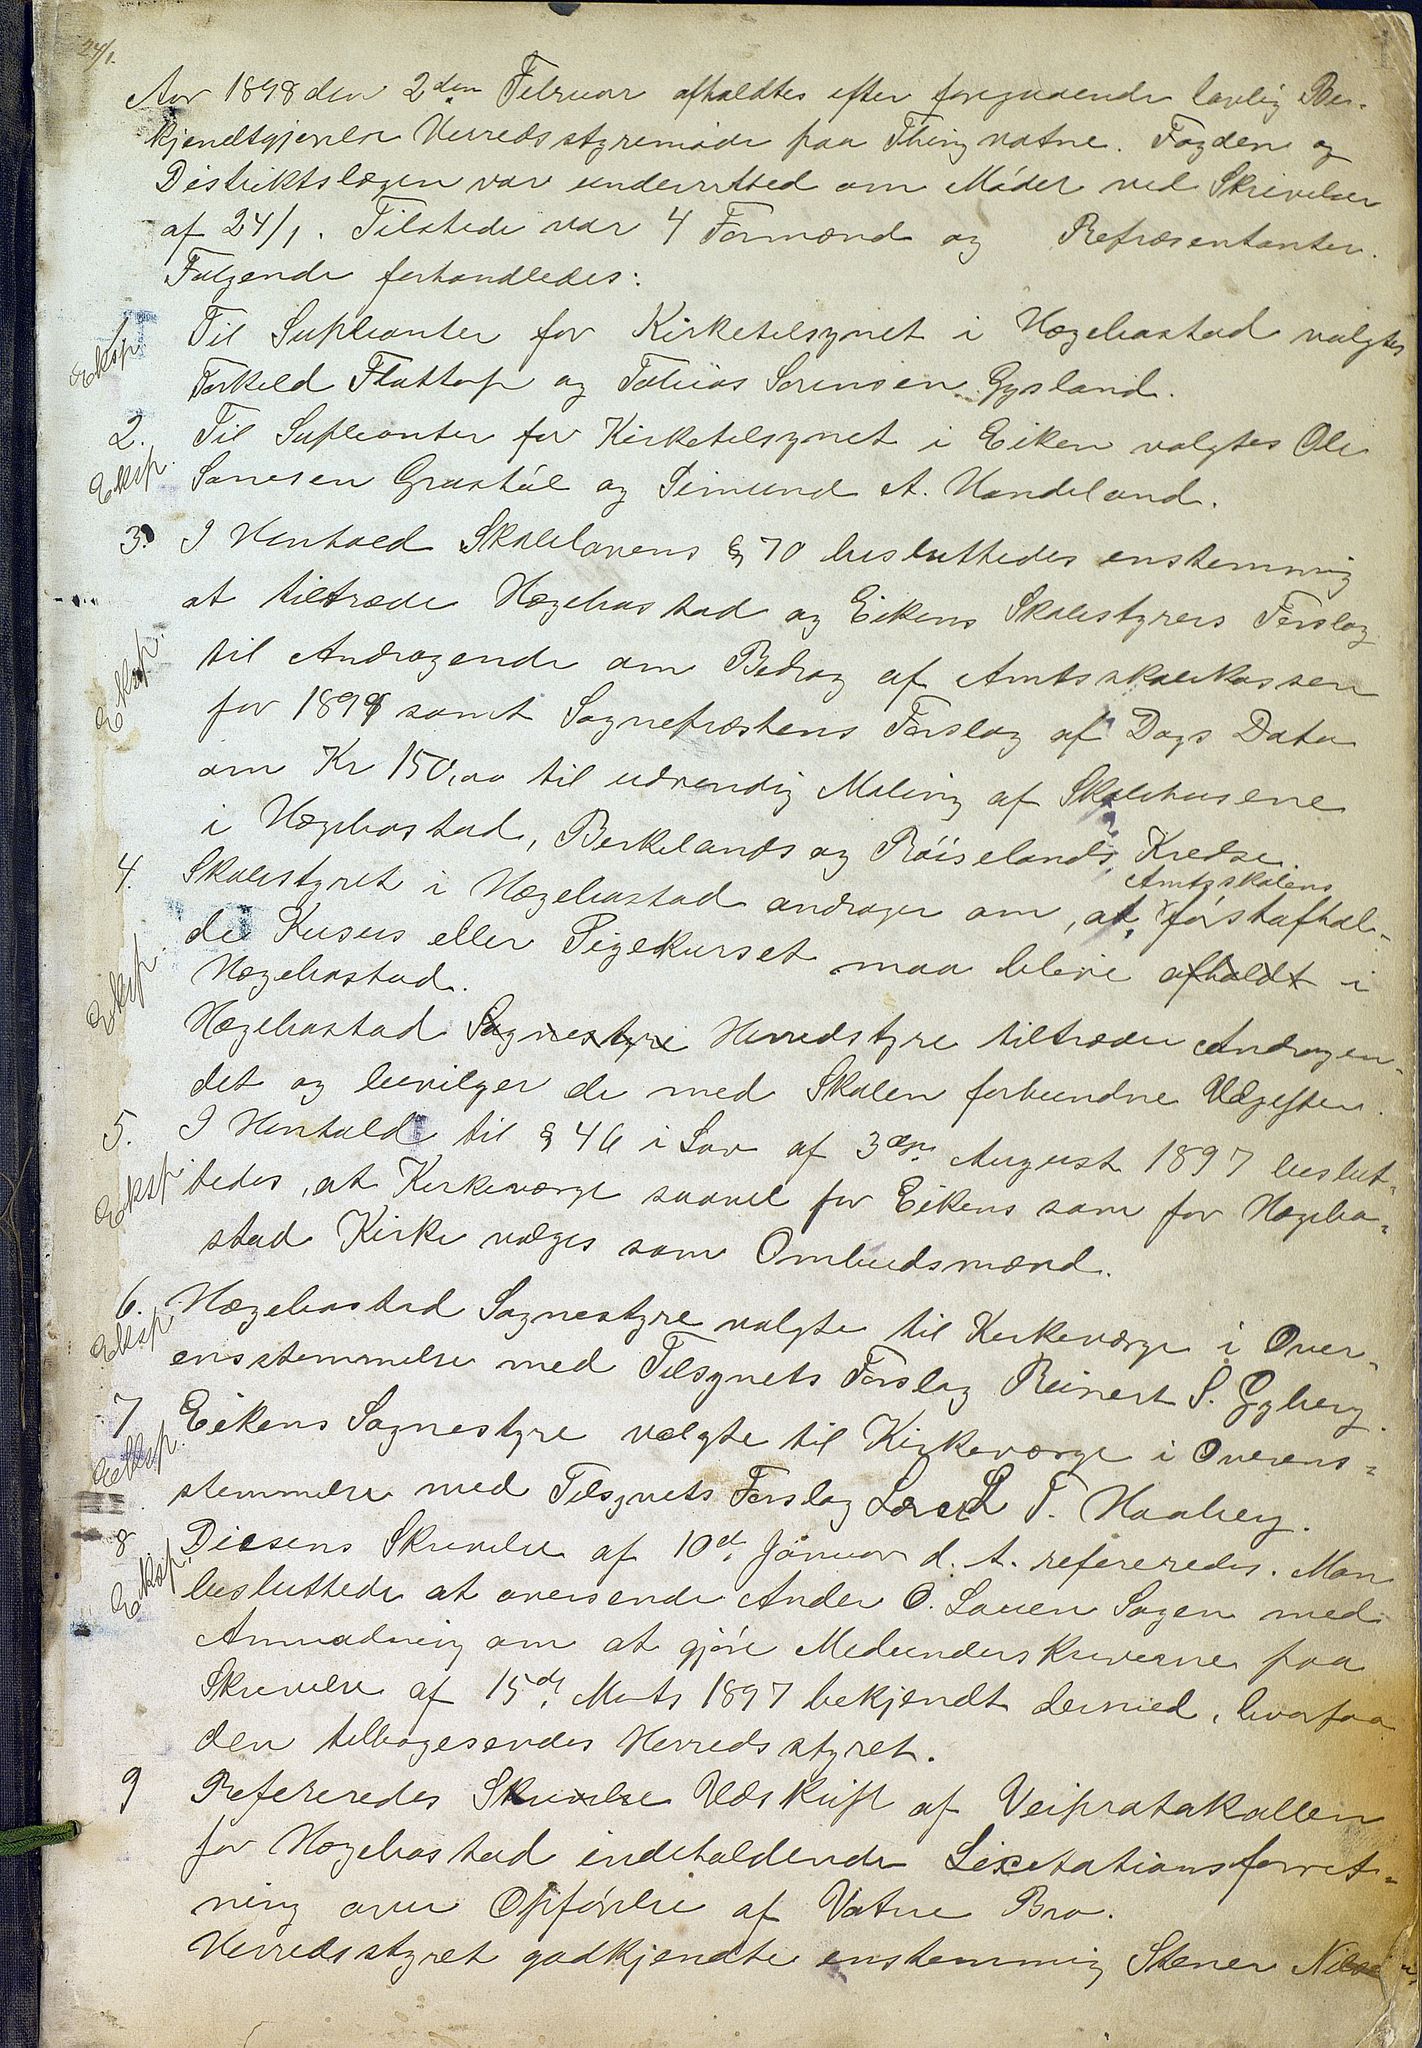 24/1.
Aar 1898 den 2den Februar afholdtes efter foregaaende lovlig Be-
kjendtgjørelse Herredsstyremøde paa Thingvatne. Fogden og
Distriktslægen var underretted om Mødet ved Skrivelser
af 24/1. Tilstede var 4 Formænd og Repræsentanter.
Følgende forhandledes:
1 Til Suplianter for Kirketilsynet i Hægebostad valgtes
Eksp.
Torkeld Flottorp og Tobias Sørensen Gysland.
2. Til Suplianter for Kirketilsynet i Eiken valgtes Ole
Eksp.
Sørensen Grastøl og Simund A. Handeland.
3. I Henhold Skolelovens § 70 besluttedes enstemmig
at tiltræde Hægebostad og Eikens Skolestyrers Forslag
Eksp.
til Andragende om Bidrag af Amtsskolekassen
for 1898 samt Sogneprestens Forslag af Dags Dato
om Kr 150,00 til udvendig Maling af Skolehusene
i Hægebostad, Birkelands og Røiselands Kredse.
4. Skolestyret i Hægebostad andrager om, at Amtsskolens førstafhol-
de Kursus eller Pigekurset maa blive afholdt i
Eksp.
Hægebostad.
Hægebostad Sognestyre Herredstyre tiltræder Andragen-
det og bevilger de med Skolen forbundne Udgifter.
5. I Henhold til § 46 i Lov af 3die August 1897 beslut-
Eksp.
tedes, at Kirkeværge saavel for Eikens som for Hægebo-
stad Kirke vælges som Ombudsmænd.
6. Hægebostad Sognestyre valgte til Kirkeværge i Over-
Eksp.
ensstemmelse med Tilsynets Forslag Reinert S. Gyberg.
7 Eikens Sognestyre valgte til Kirkeværge i Overens-
Eksp.
stemmelse med Tilsynets Forslag T. Haaberg.
8 Skrivelse af 10de Januar d. A. refereredes. Man
Eksp.
besluttede at oversende O. Lauen Sagen med
Anmodning om at gjøre Medunderskriverne paa
Skrivelse af 15de Marts 1897 bekjendt dermed, hvorpaa
den tilbagesendes Herredsstyret.
9 Refereredes Skrivelse Udskrift af Veiprotokollen
for Hægebostad indeholdende Licitationsforret-
ning over Opførelse af Vatne Bro.
Herredsstyret godkjendte enstemmig Stener